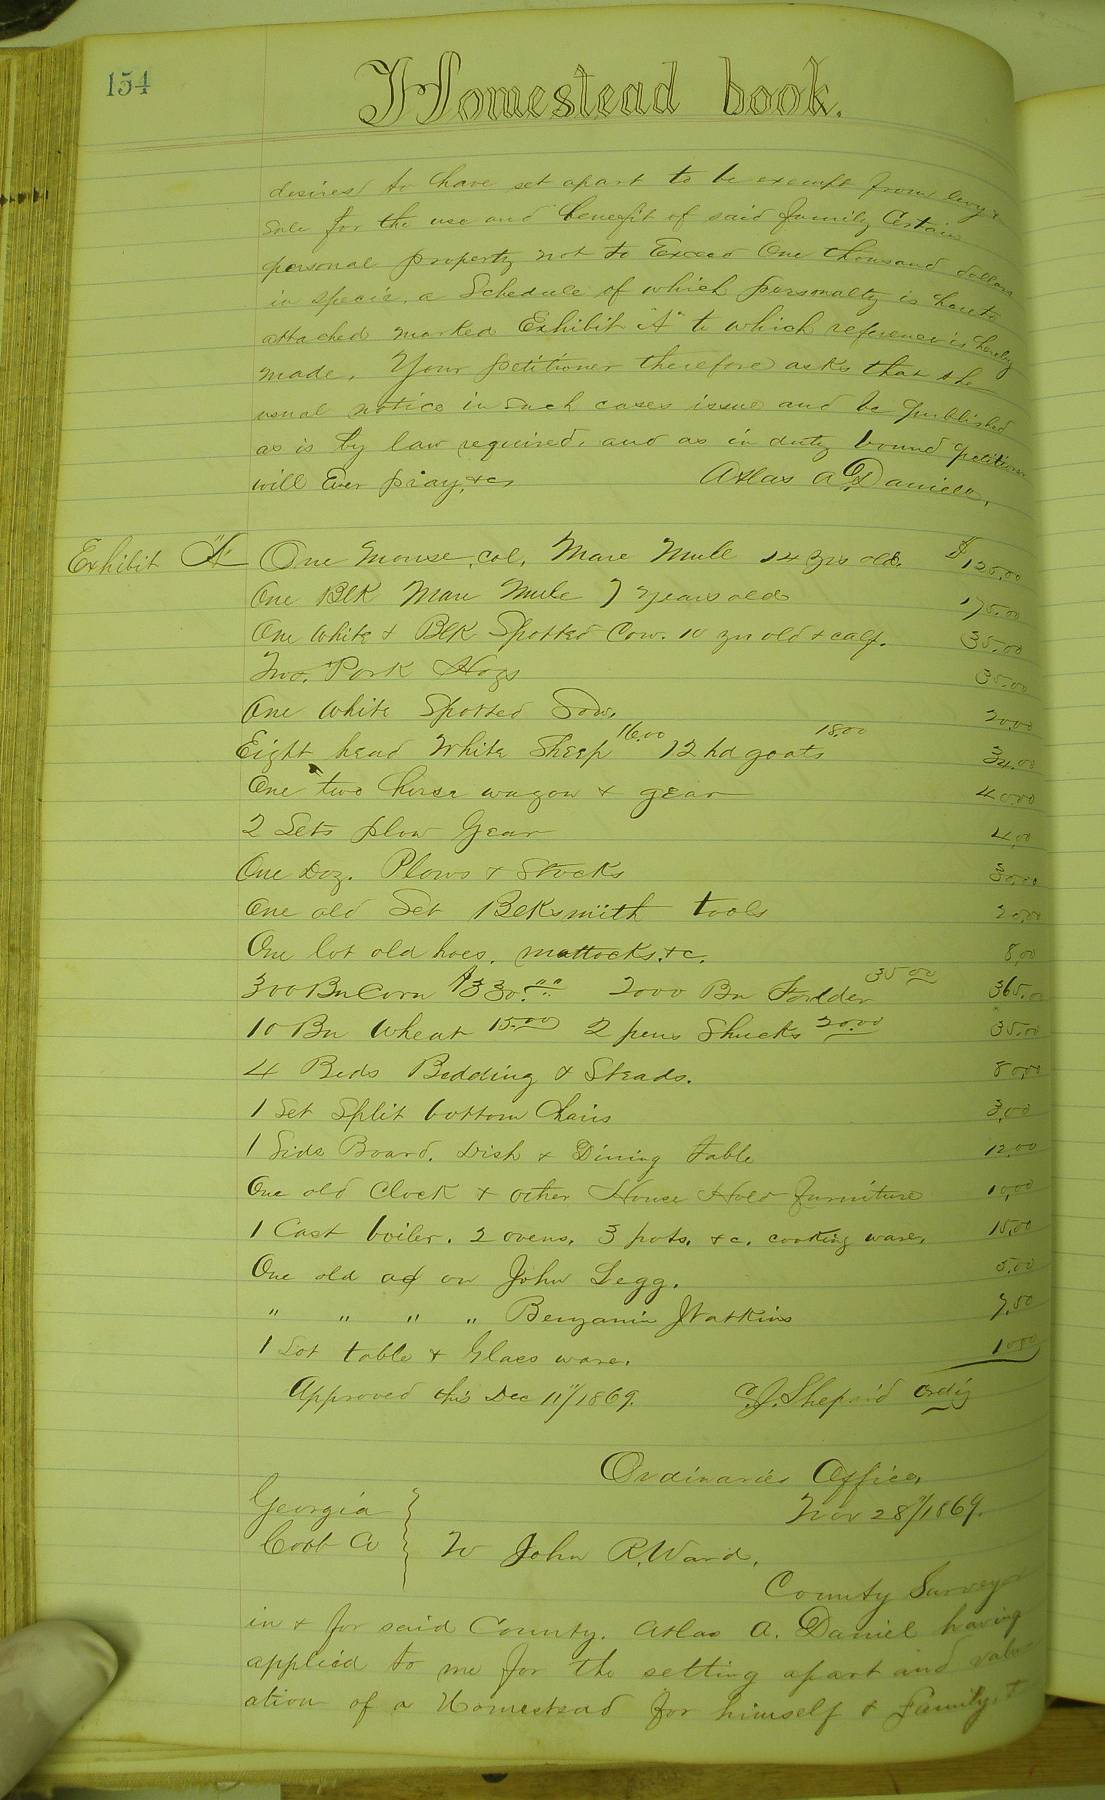 154
Homestead book.
desires to have set apart to be exempt from levy &
Sale for the use and benefit of said family Certain
personal property not to Exceed One thousand dollars
in specie, a Schedule of which personalty is hereto
attached marked Exhibit "A" to which reference is hereby
made. Your petitioner therefore asks that the
usual notice in such cases issue and be published
as is by law required, and as in duty bound petitioner
will Ever pray, &c. Atlas A Daniell.
Exhibit "A" One Mouse, col, Mare Mule 14 yrs old. $125.00
One Blk Mare Mule 7 years old 175.00
One White & Blk Spotted Cow. 10 yrs old & calf. 35.00
Two, Pork Hogs 35.00
One White Spotted Sow. 20.00
Eight head White Sheep 16.00 12 hd goats 18.00 34.00
One two horse wagon & gear 40.00
2 Sets plow Gear 4.00
One Doz. Plows & Stocks 30.00
One old Set Blksmith tools 20.00
One lot old hoes, mattocks, &c. 8.00
300 Bu Corn $330.00 2000 Bu Fodder 35.00 365.00
10 Bu Wheat 15.00 2 pens Shucks 20.00 35.00
4 Beds Bedding & Steads. 80.00
1 Set Split bottom Chairs 3.00
1 Side Board. Dish & Dining table 12.00
One old Clock & other House Hold furniture 10.00
1 Cast boiler. 2 ovens, 3 pots, &c. cooking ware, 15.00
One old on John Legg. 5.00
" " " " Benjamin Watkins 7.50
1 Lot table & Glass ware. 10.00
Approved this Dec 11"/1869. Ordy
Ordinaries Office,
Georgia Nov 28"/1869.
Cobb Co To John R. Ward,
County Surveyor
in & for said County. Atlas A. Daniel having
applied to me for the setting apart and valu
ation of a Homestead for himself & family, &